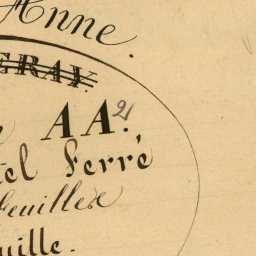 Anne.
ERAY.
AA.
2
tel Ferré
Feuilles
uille.